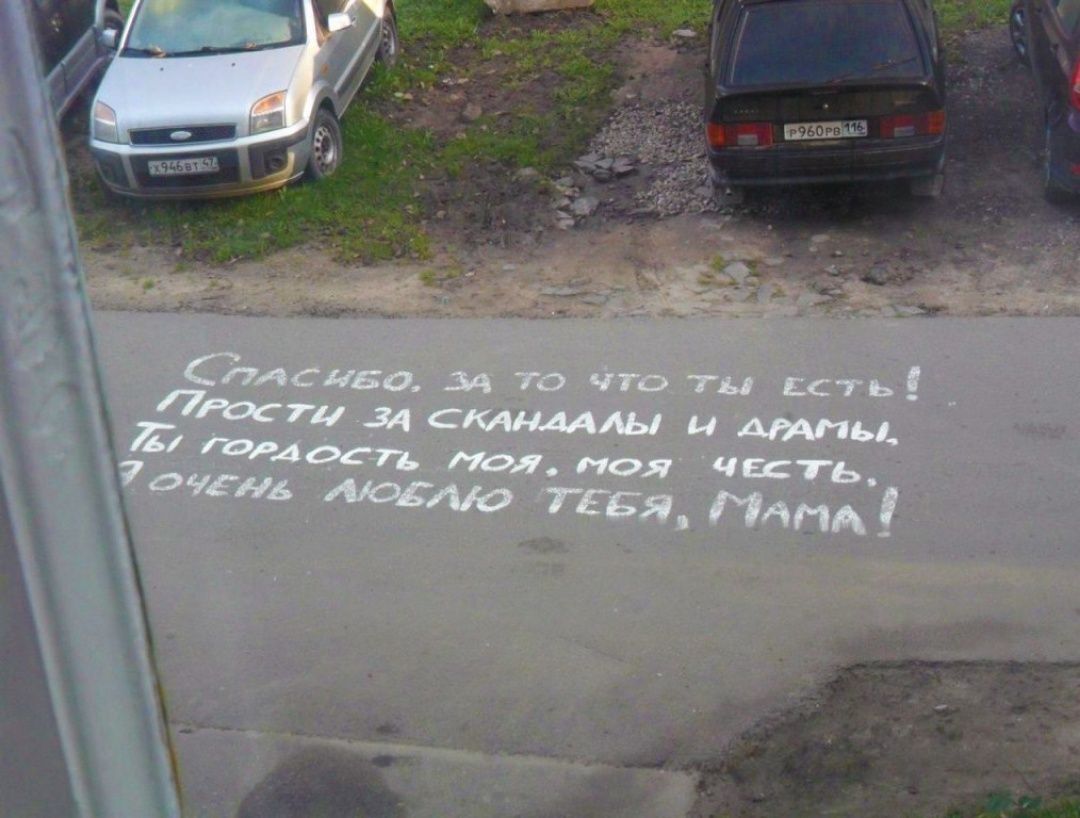 Х946ВТ 47
Р960РВ 116
Спасибо, за то что ты есть!
Прости за скандалы и драмы,
Ты гордость моя, моя честь,
Я очень люблю тебя, Мама!